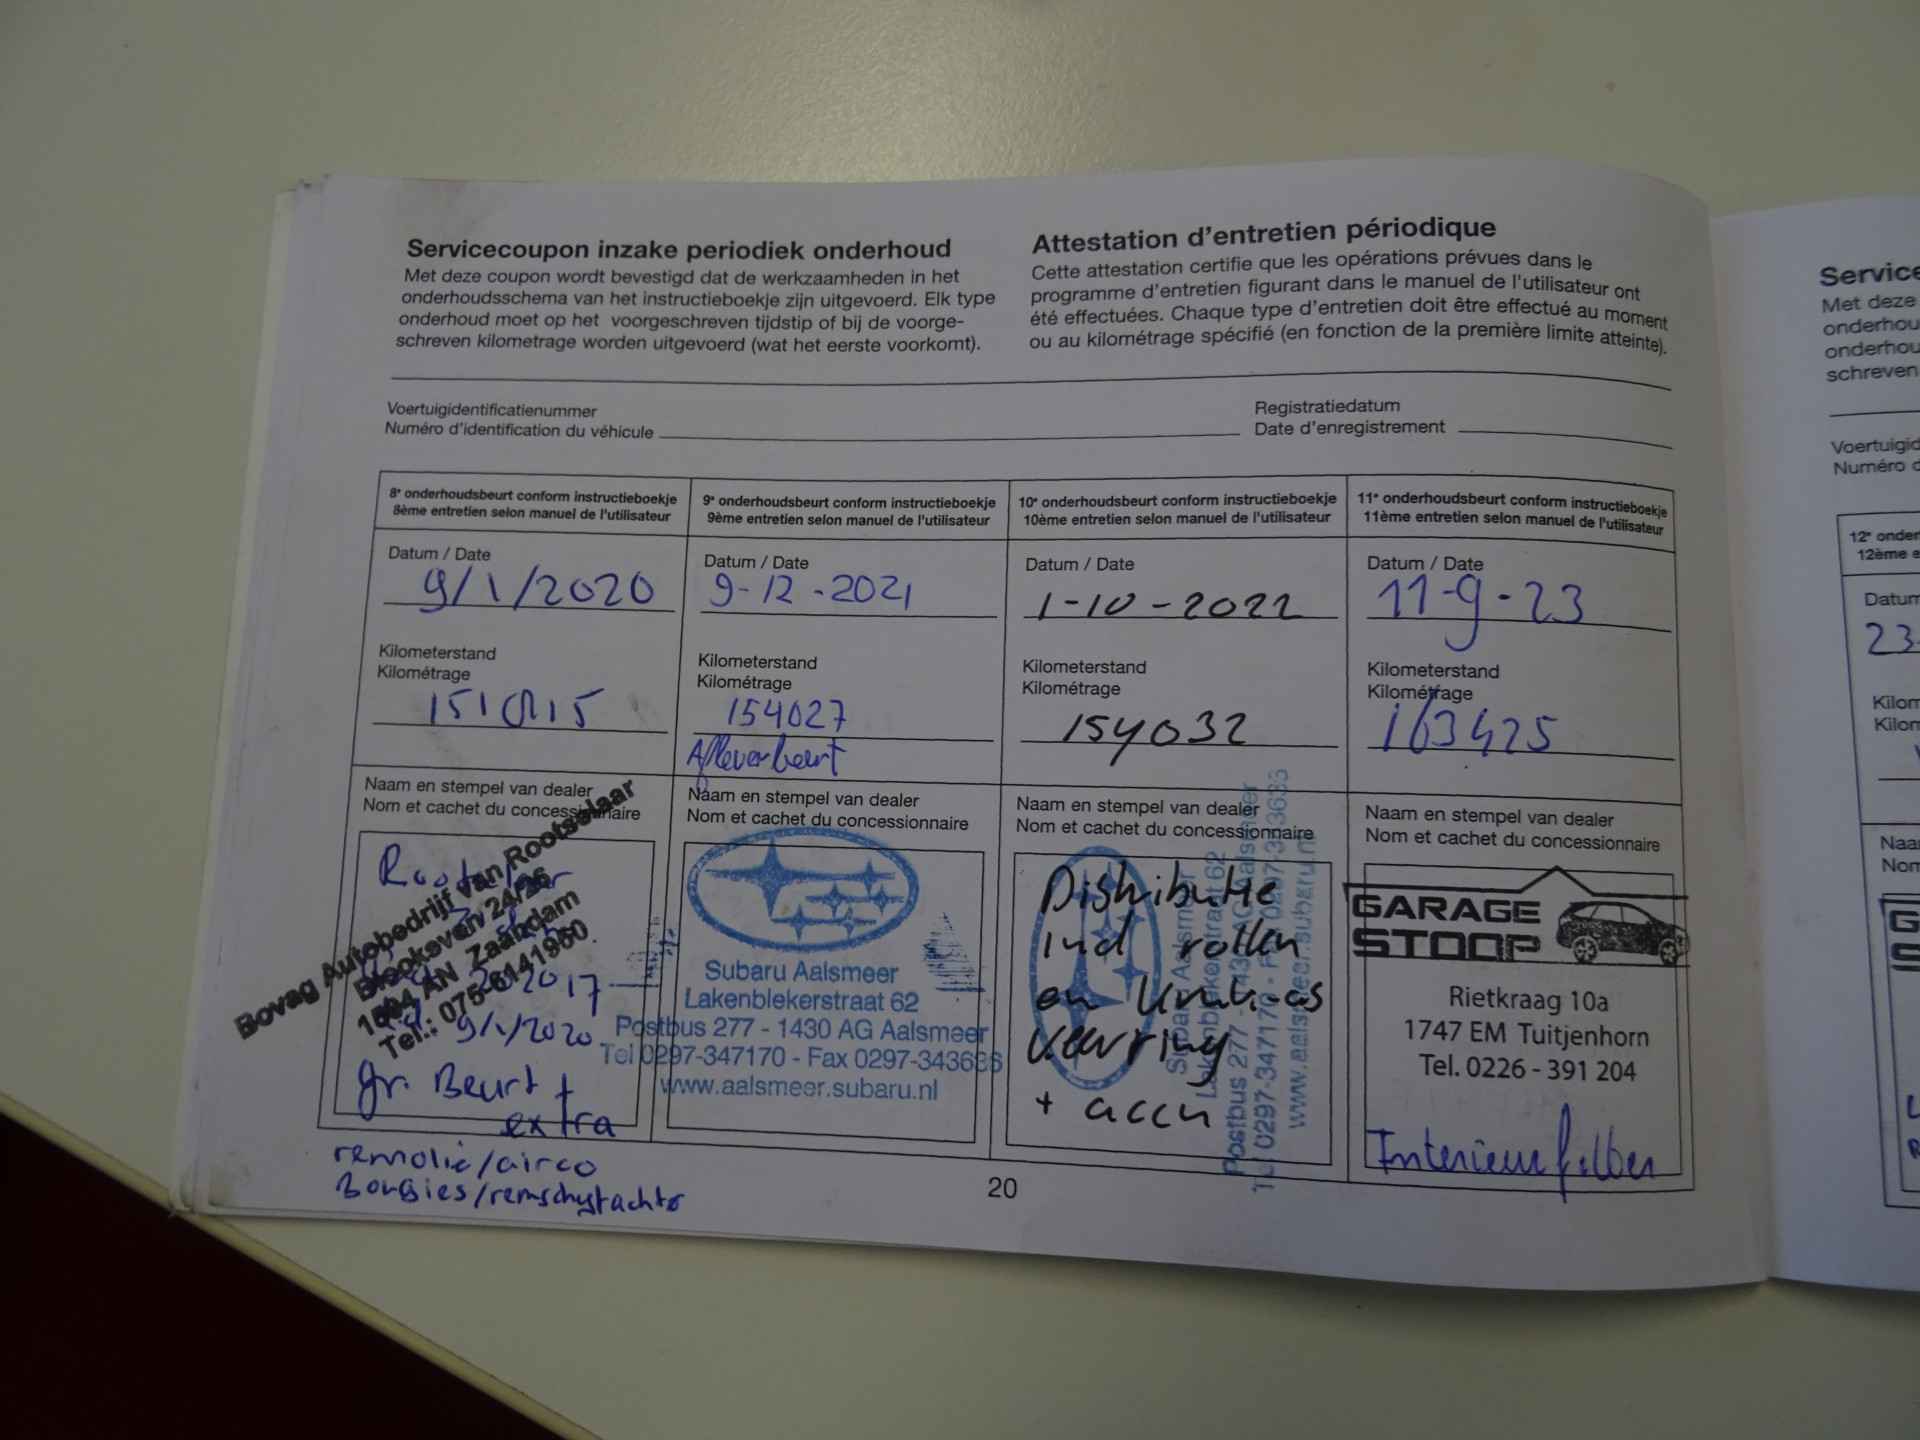 Servicecoupon inzake periodiek onderhoud
Met deze coupon wordt bevestigd dat de werkzaamheden in het
onderhoudsschema van het instructieboekje zijn uitgevoerd. Elk type
onderhoud moet op het voorgeschreven tijdstip of bij de voorge-
schreven kilometrage worden uitgevoerd (wat het eerste voorkomt).
Attestation d'entretien périodique
Cette attestation certifie que les opérations prévues dans le
programme d'entretien figurant dans le manuel de l'utilisateur ont
été effectuées. Chaque type d'entretien doit être effectué au moment
ou au kilométrage spécifié (en fonction de la première limite atteinte).
Voertuigidentificatienummer
Numéro d'identification du véhicule
Registratiedatum
Date d'enregistrement
8e onderhoudsbeurt conform instructieboekje
8ème entretien selon manuel de l'utilisateur
Datum / Date
9/1/2020
Kilometerstand
Kilométrage
Naam en stempel van dealer
Nom et cachet du concessionnaire
Bovag Autobedrijf van Rootselaar
24/26
1504 AN Zaandam
Tel.: 075-6141950
2017
9/1/2020
gr. Beurt +
extra
remolie/airco
Bougies/
9e onderhoudsbeurt conform instructieboekje
9ème entretien selon manuel de l'utilisateur
Datum / Date
9-12-2021
Kilometerstand
Kilométrage
154027
Afleverbeurt
Naam en stempel van dealer
Nom et cachet du concessionnaire
Subaru Aalsmeer
Lakenblekerstraat 62
Postbus 277 - 1430 AG Aalsmeer
Tel 0297-347170 - Fax 0297-343633
www.aalsmeer.subaru.nl
10e onderhoudsbeurt conform instructieboekje
10ème entretien selon manuel de l'utilisateur
Datum / Date
1-10-2022
Kilometerstand
Kilométrage
154032
Naam en stempel van dealer
Nom et cachet du concessionnaire
Distributie
ind rollen
en
keerring
+ accu
Subaru Aalsmeer
Lakenblekerstraat 62
Postbus 277 - 1430 AG Aalsmeer
Tel 0297-347170 - Fax 0297-343633
www.aalsmeer.subaru.nl
11e onderhoudsbeurt conform instructieboekje
11ème entretien selon manuel de l'utilisateur
Datum / Date
11-9-23
Kilometerstand
Kilométrage
163425
Naam en stempel van dealer
Nom et cachet du concessionnaire
GARAGE
STOOP
Rietkraag 10a
1747 EM Tuitjenhorn
Tel. 0226 - 391 204
Interieurfilter
20
Service
Met deze
onderhou
onderhou
schreven
Voertuigid
Numéro d
12e onder
12ème e
Datum
23-
Kilom
Kilom
Naa
Nom
G
S